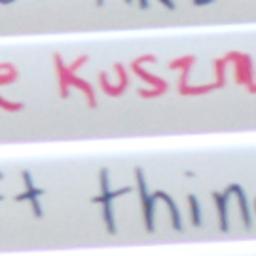 e Kuszm
ft thin